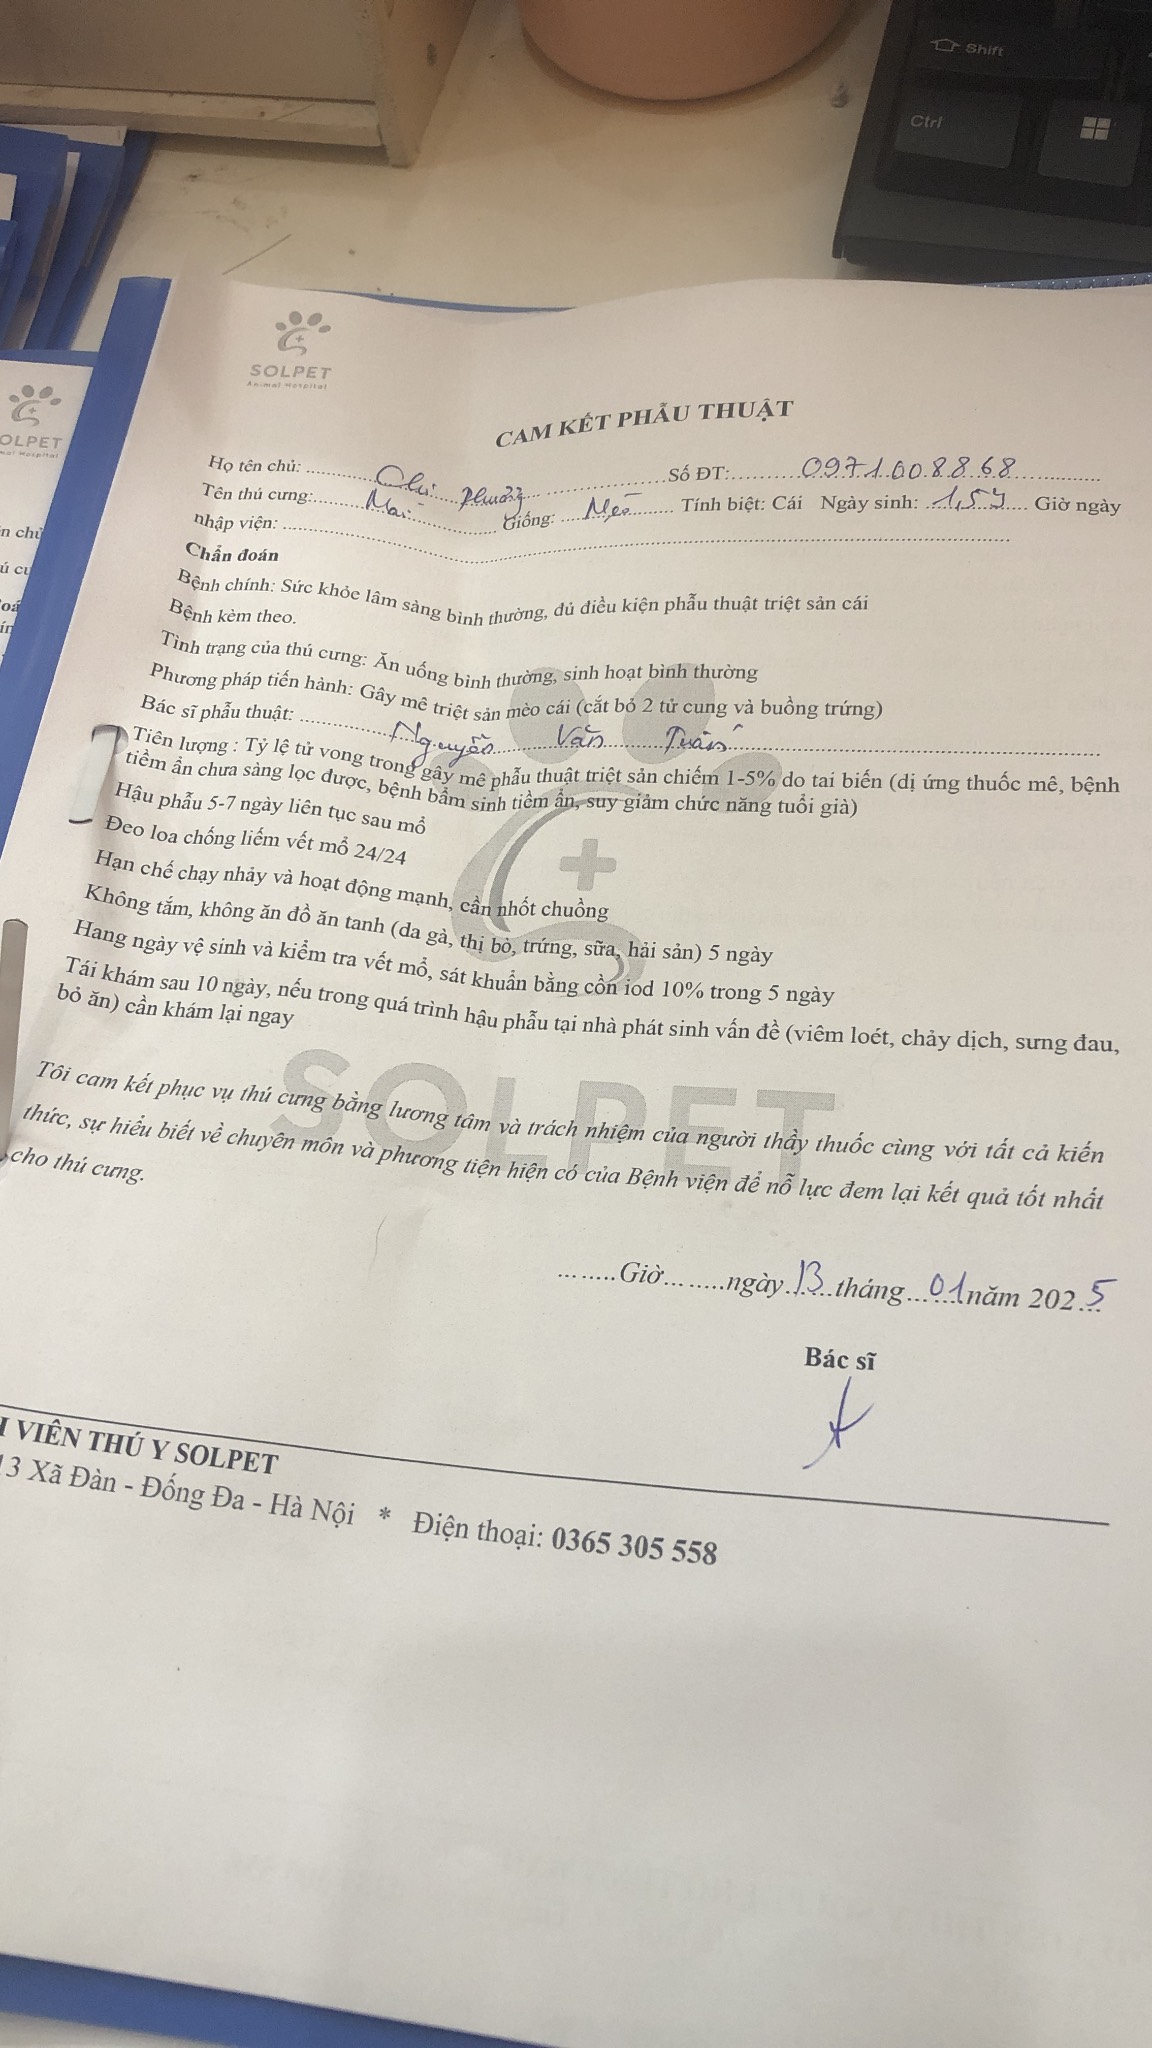 Shift
Ctrl
SOLPET
Animal Hospital
OLPET
mal Hospital
CAM KẾT PHẪU THUẬT
Họ tên chủ: Chị Phương Số ĐT: 0971008868
Tên thú cưng: Mai Giống: Mèo Tính biệt: Cái Ngày sinh: 1,5y Giờ ngày
nhập viện:
Chẩn đoán
Bệnh chính: Sức khỏe lâm sàng bình thường, đủ điều kiện phẫu thuật triệt sản cái
Bệnh kèm theo.
Tình trạng của thú cưng: Ăn uống bình thường, sinh hoạt bình thường
Phương pháp tiến hành: Gây mê triệt sản mèo cái (cắt bỏ 2 tử cung và buồng trứng)
Bác sĩ phẫu thuật: Nguyễn Văn Tuấn
Tiên lượng : Tỷ lệ tử vong trong gây mê phẫu thuật triệt sản chiếm 1-5% do tai biến (dị ứng thuốc mê, bệnh
tiềm ẩn chưa sàng lọc được, bệnh bẩm sinh tiềm ẩn, suy giảm chức năng tuổi già)
Hậu phẫu 5-7 ngày liên tục sau mổ
Đeo loa chống liếm vết mổ 24/24
Hạn chế chạy nhảy và hoạt động mạnh, cần nhốt chuồng
Không tắm, không ăn đồ ăn tanh (da gà, thị bò, trứng, sữa, hải sản) 5 ngày
Hang ngày vệ sinh và kiểm tra vết mổ, sát khuẩn bằng cồn iod 10% trong 5 ngày
Tái khám sau 10 ngày, nếu trong quá trình hậu phẫu tại nhà phát sinh vấn đề (viêm loét, chảy dịch, sưng đau,
bỏ ăn) cần khám lại ngay
SOLPET
Tôi cam kết phục vụ thú cưng bằng lương tâm và trách nhiệm của người thầy thuốc cùng với tất cả kiến
thức, sự hiểu biết về chuyên môn và phương tiện hiện có của Bệnh viện để nỗ lực đem lại kết quả tốt nhất
cho thú cưng.
........Giờ........ngày 13 tháng 01 năm 2025
Bác sĩ
VIÊN THÚ Y SOLPET
13 Xã Đàn - Đống Đa - Hà Nội * Điện thoại: 0365 305 558